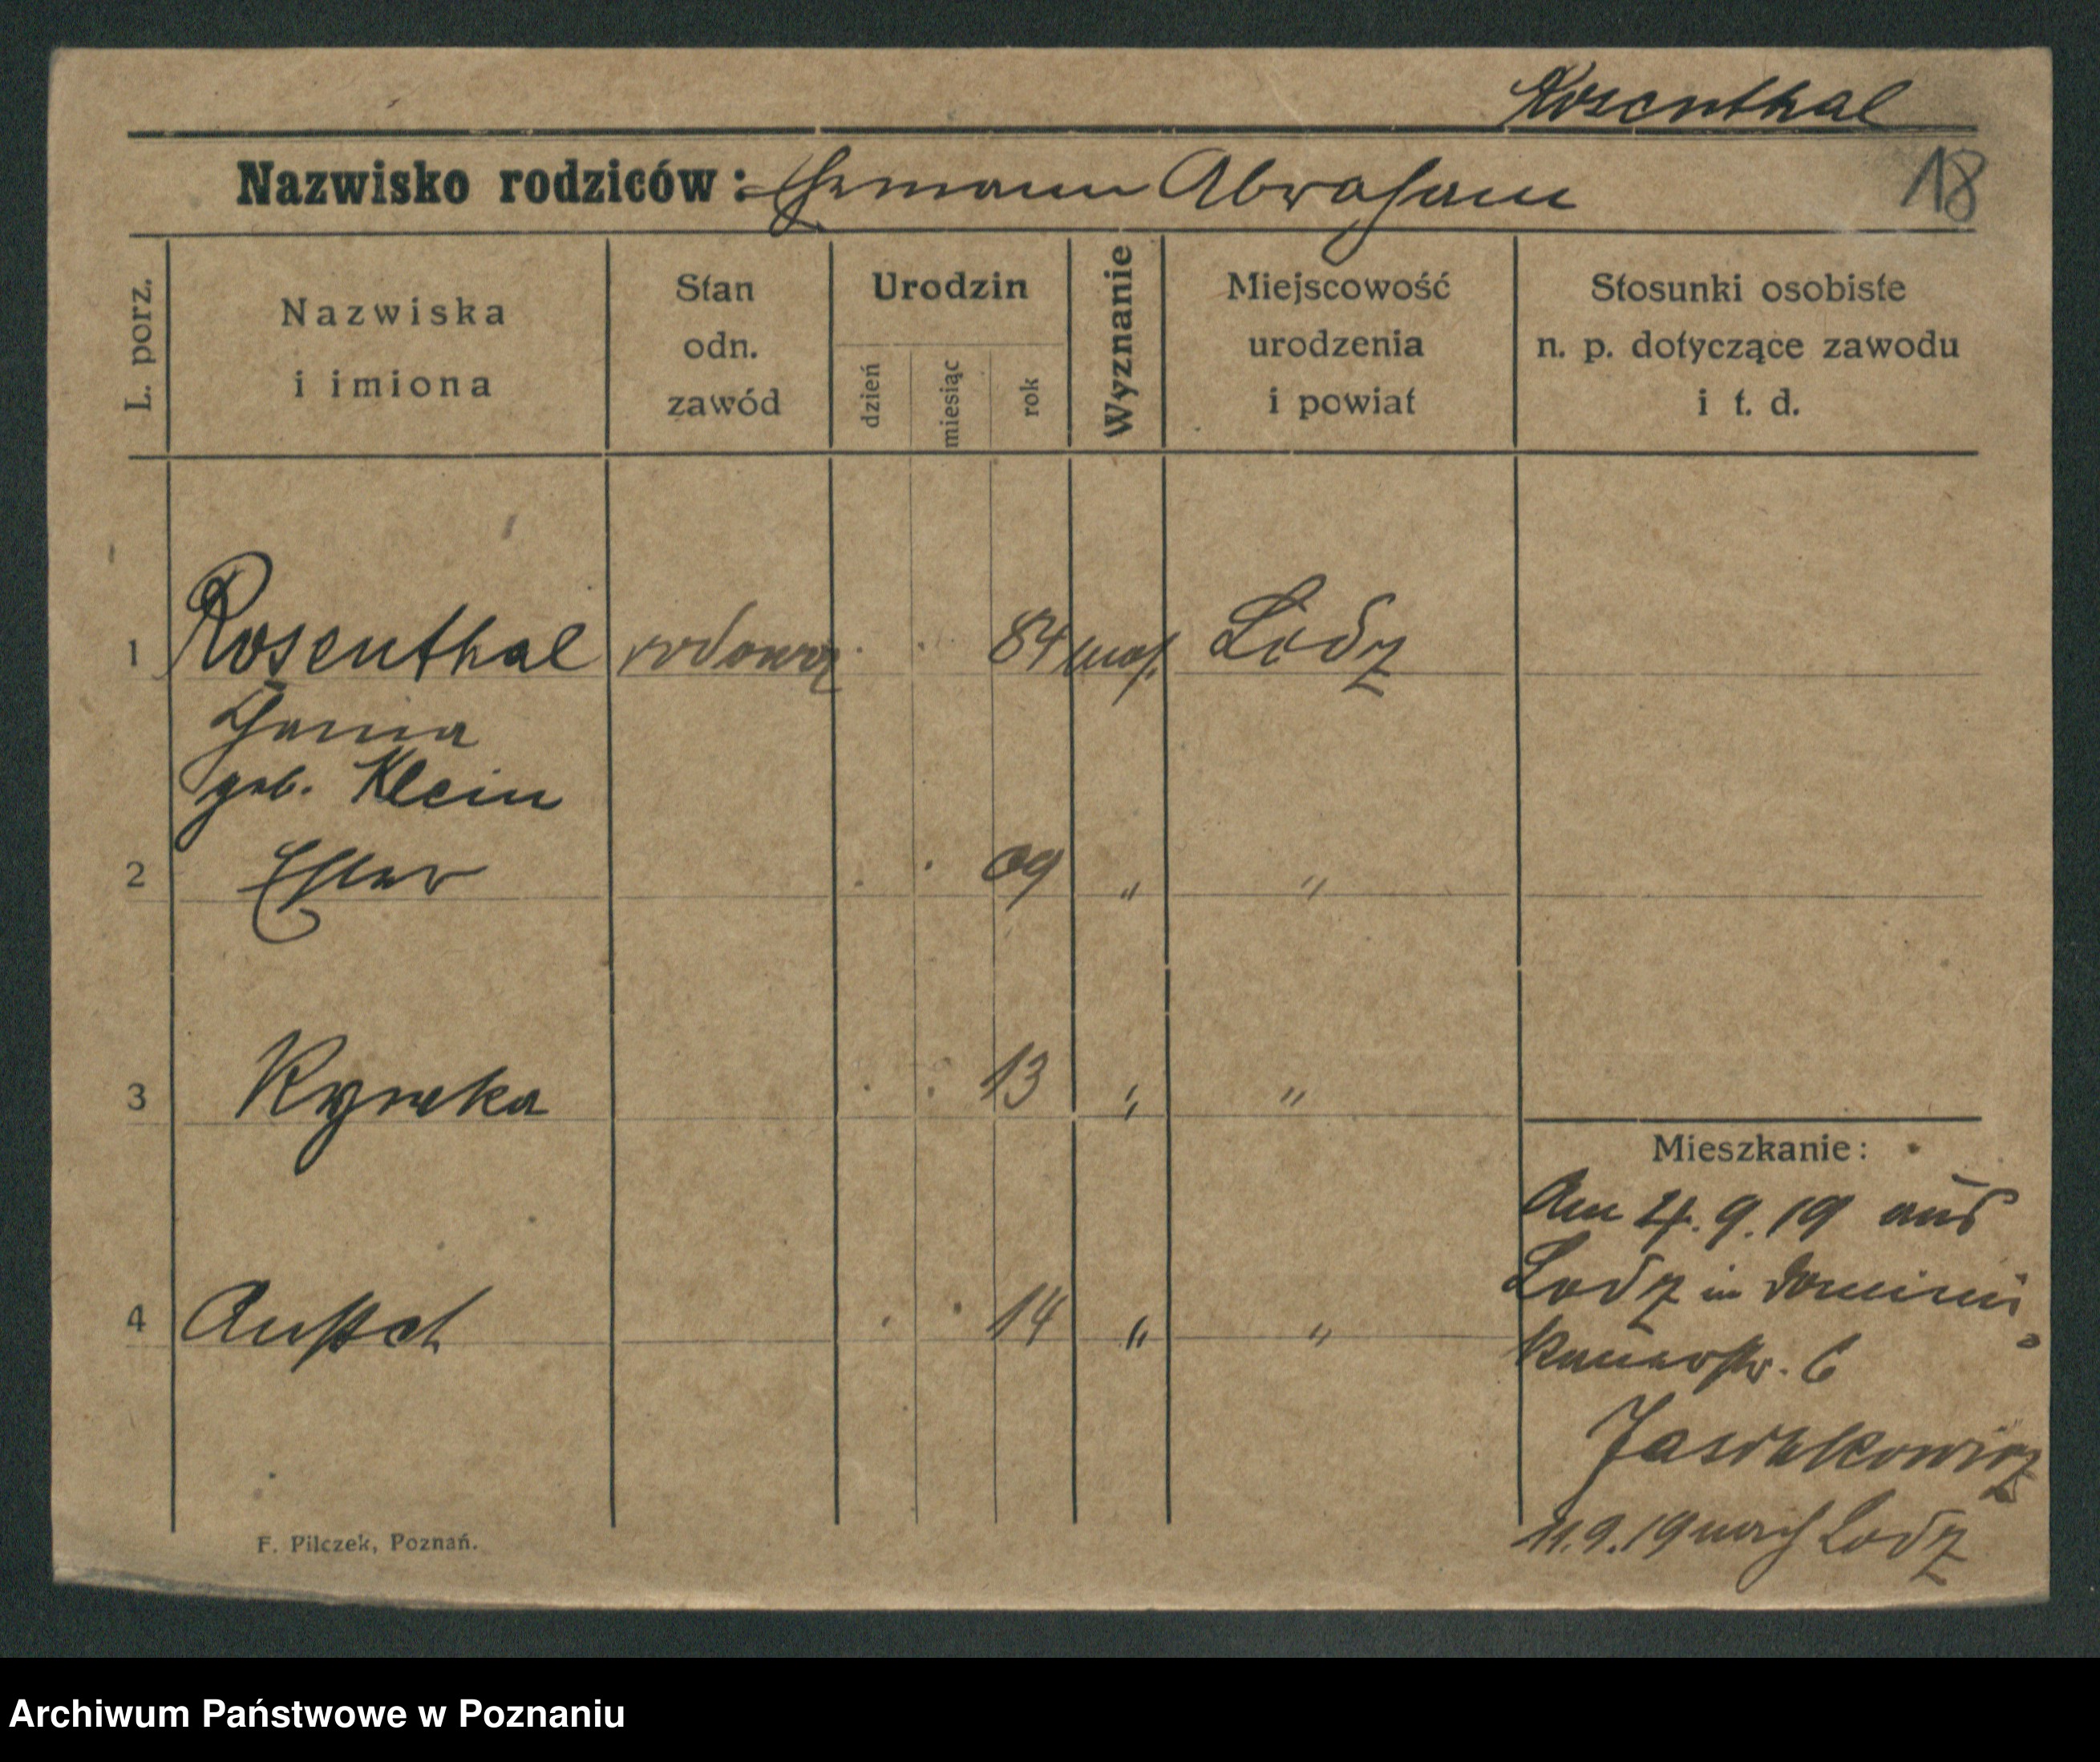 Rosenthal
Nazwisko rodziców: Hermann Abraham
18
L. porz.
Nazwiska
i imiona
Stan
odn.
zawód
Urodzin
dzień
miesiąc
rok
Wyznanie
Miejscowość
urodzenia
i powiat
Stosunki osobiste
n. p. dotyczące zawodu
i t. d.
1 Rosenthal 84 Lodz
geb. Klein
2 Ester 09 " "
3 13 " "
4 14 " "
Mieszkanie:
Am 4. 9. 19 aus
Lodz in Domini
kanerstr. 6
11.9.19 nach Lodz
F. Pilczek, Poznań.
Archiwum Państwowe w Poznaniu